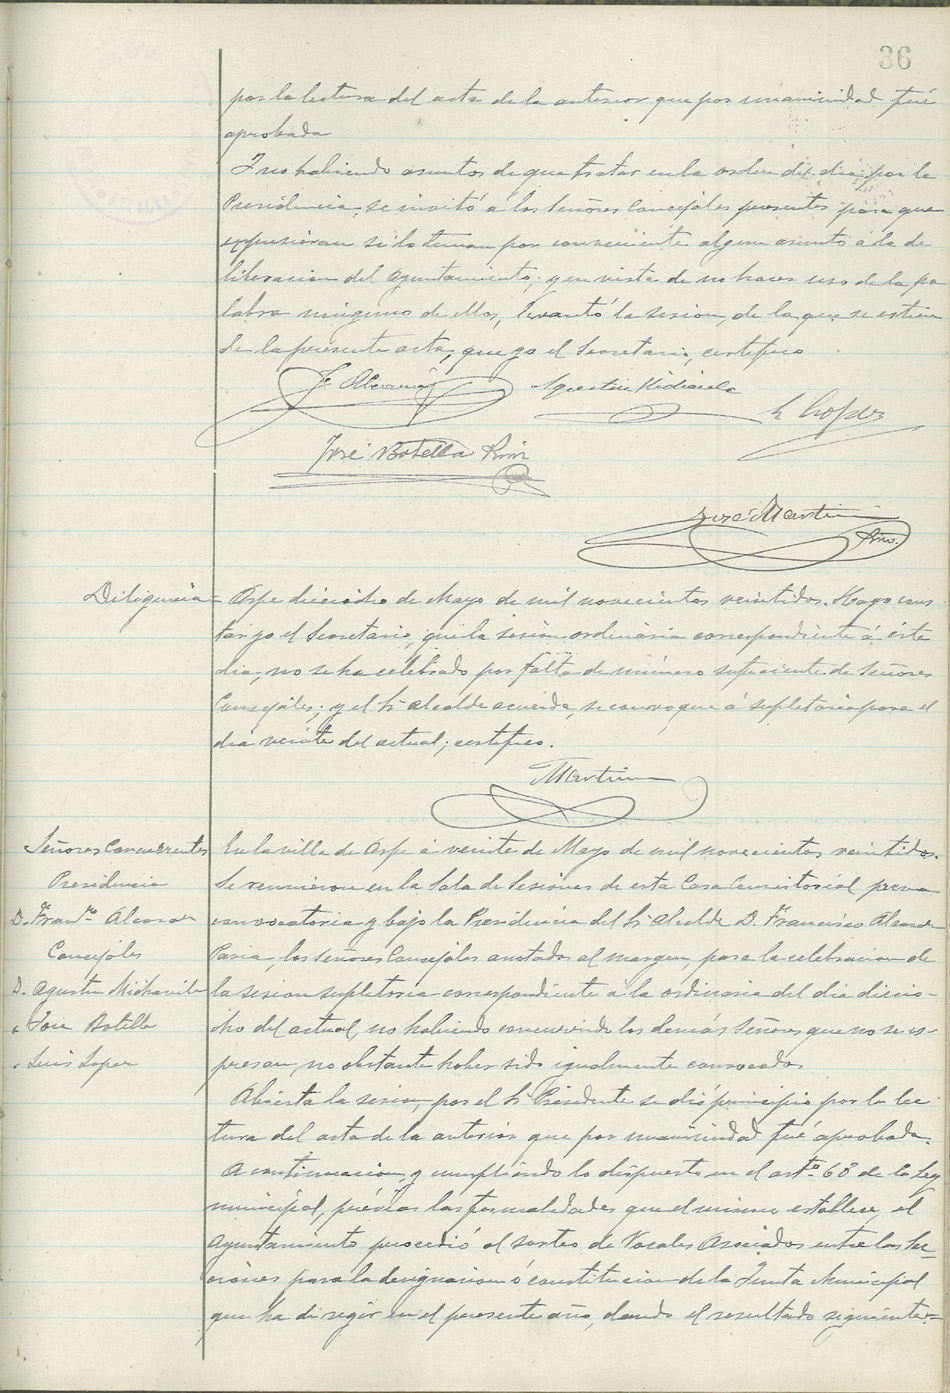 36
por la lectura del acta de la anterior que por unanimidad fué
aprobada
Y no habiendo asuntos de que tratar en la orden del dia, por la
Presidencia, se invitó á los Señores Concejales presentes para que
expusieran si lo tenian por conveniente algun asunto á la de
liberacion del Ayuntamiento; y en vista de no hacer uso de la pa
labra ninguno de ellos, levantó la sesion, de la que se estien
de la presente acta, que yo el Secretario, certifico
F. Alcaraz
Agustin Michavila
L. Lopez
José Botella
José Martin
Srio.
Diligencia = Aspe dieciocho de Mayo de mil novecientos veintidos. Hago cons
tar yo el Secretario, que la sesion ordinaria correspondiente á éste
dia, no se ha celebrado por falta de número suficiente de Señores
Concejales; y el Sr. Alcalde acuerda, se convoque á supletoria para el
dia veinte del actual; certifico.
Martin
Señores Concurrentes
Presidencia
D. Franco. Alcaraz
Concejales
D. Agustin Michavila
" José Botella
" Luis Lopez
En la villa de Aspe á veinte de Mayo de mil novecientos veintidos.
Se reunieron en la Sala de Sesiones de esta Casa Consistorial previa
convocatoria y bajo la Presidencia del Sr. Alcalde D. Francisco Alcaraz
los Señores Concejales anotados al margen, para la celebracion de
la sesion supletoria correspondiente a la ordinaria del dia diecio-
cho del actual, no habiendo concurrido los demás Señores que no se es-
presan, no obstante haber sido igualmente convocados
Abierta la sesion, por el Sr. Presidente se dió principio por la lec
tura del acta de la anterior que por unanimidad fué aprobada.
A continuacion, y cumpliendo lo dispuesto en el arto. 68 de la Ley
municipal, prévias las formalidades que el mismo establece, el
Ayuntamiento procedió al sorteo de Vocales Asociados entre las Sec-
ciones para la designacion ó constitucion de la Junta Municipal
que ha de regir en el presente año, dando el resultado siguiente:-